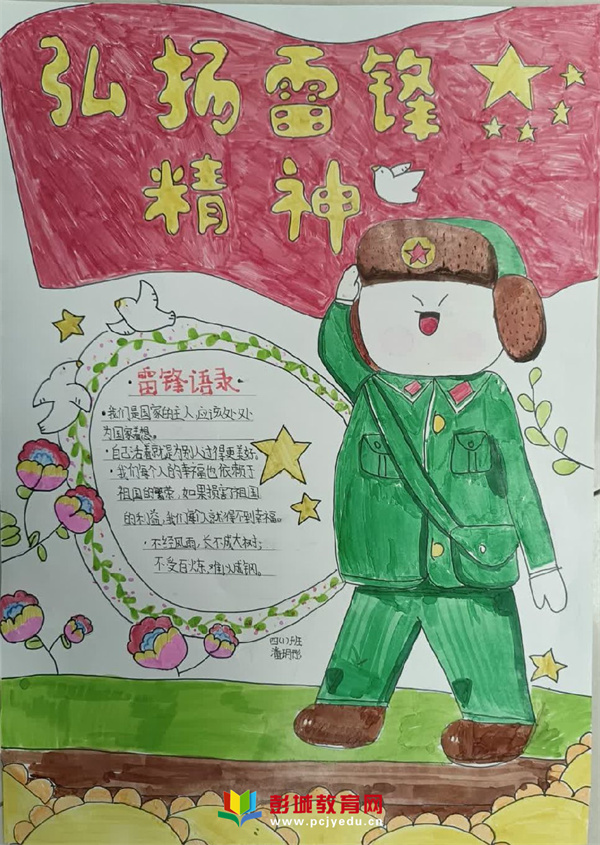 弘扬雷锋
精神
·雷锋语录·
·我们是国家的主人,应该处处
为国家着想。
·自己活着就是为别人过得更美好。
·我们每个人的幸福也依赖于
祖国的繁荣,如果损害了祖国
的利益,我们每人就得不到幸福。
·不经风雨,长不成大树;
不受百炼,难以成钢。
四(1)班
彭城教育网
www.pcjyedu.cn